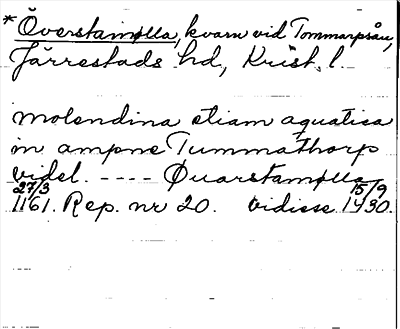 *Överstamølla, kvarn vid Tommarpsån,
Järrestads hd, Krist. l.
molendina etiam aquatica
in ampne Tummathorp
videl. ---- Øuarstamølla
27/3 1161. Rep. nr 20. vidisse 15/9 1430.